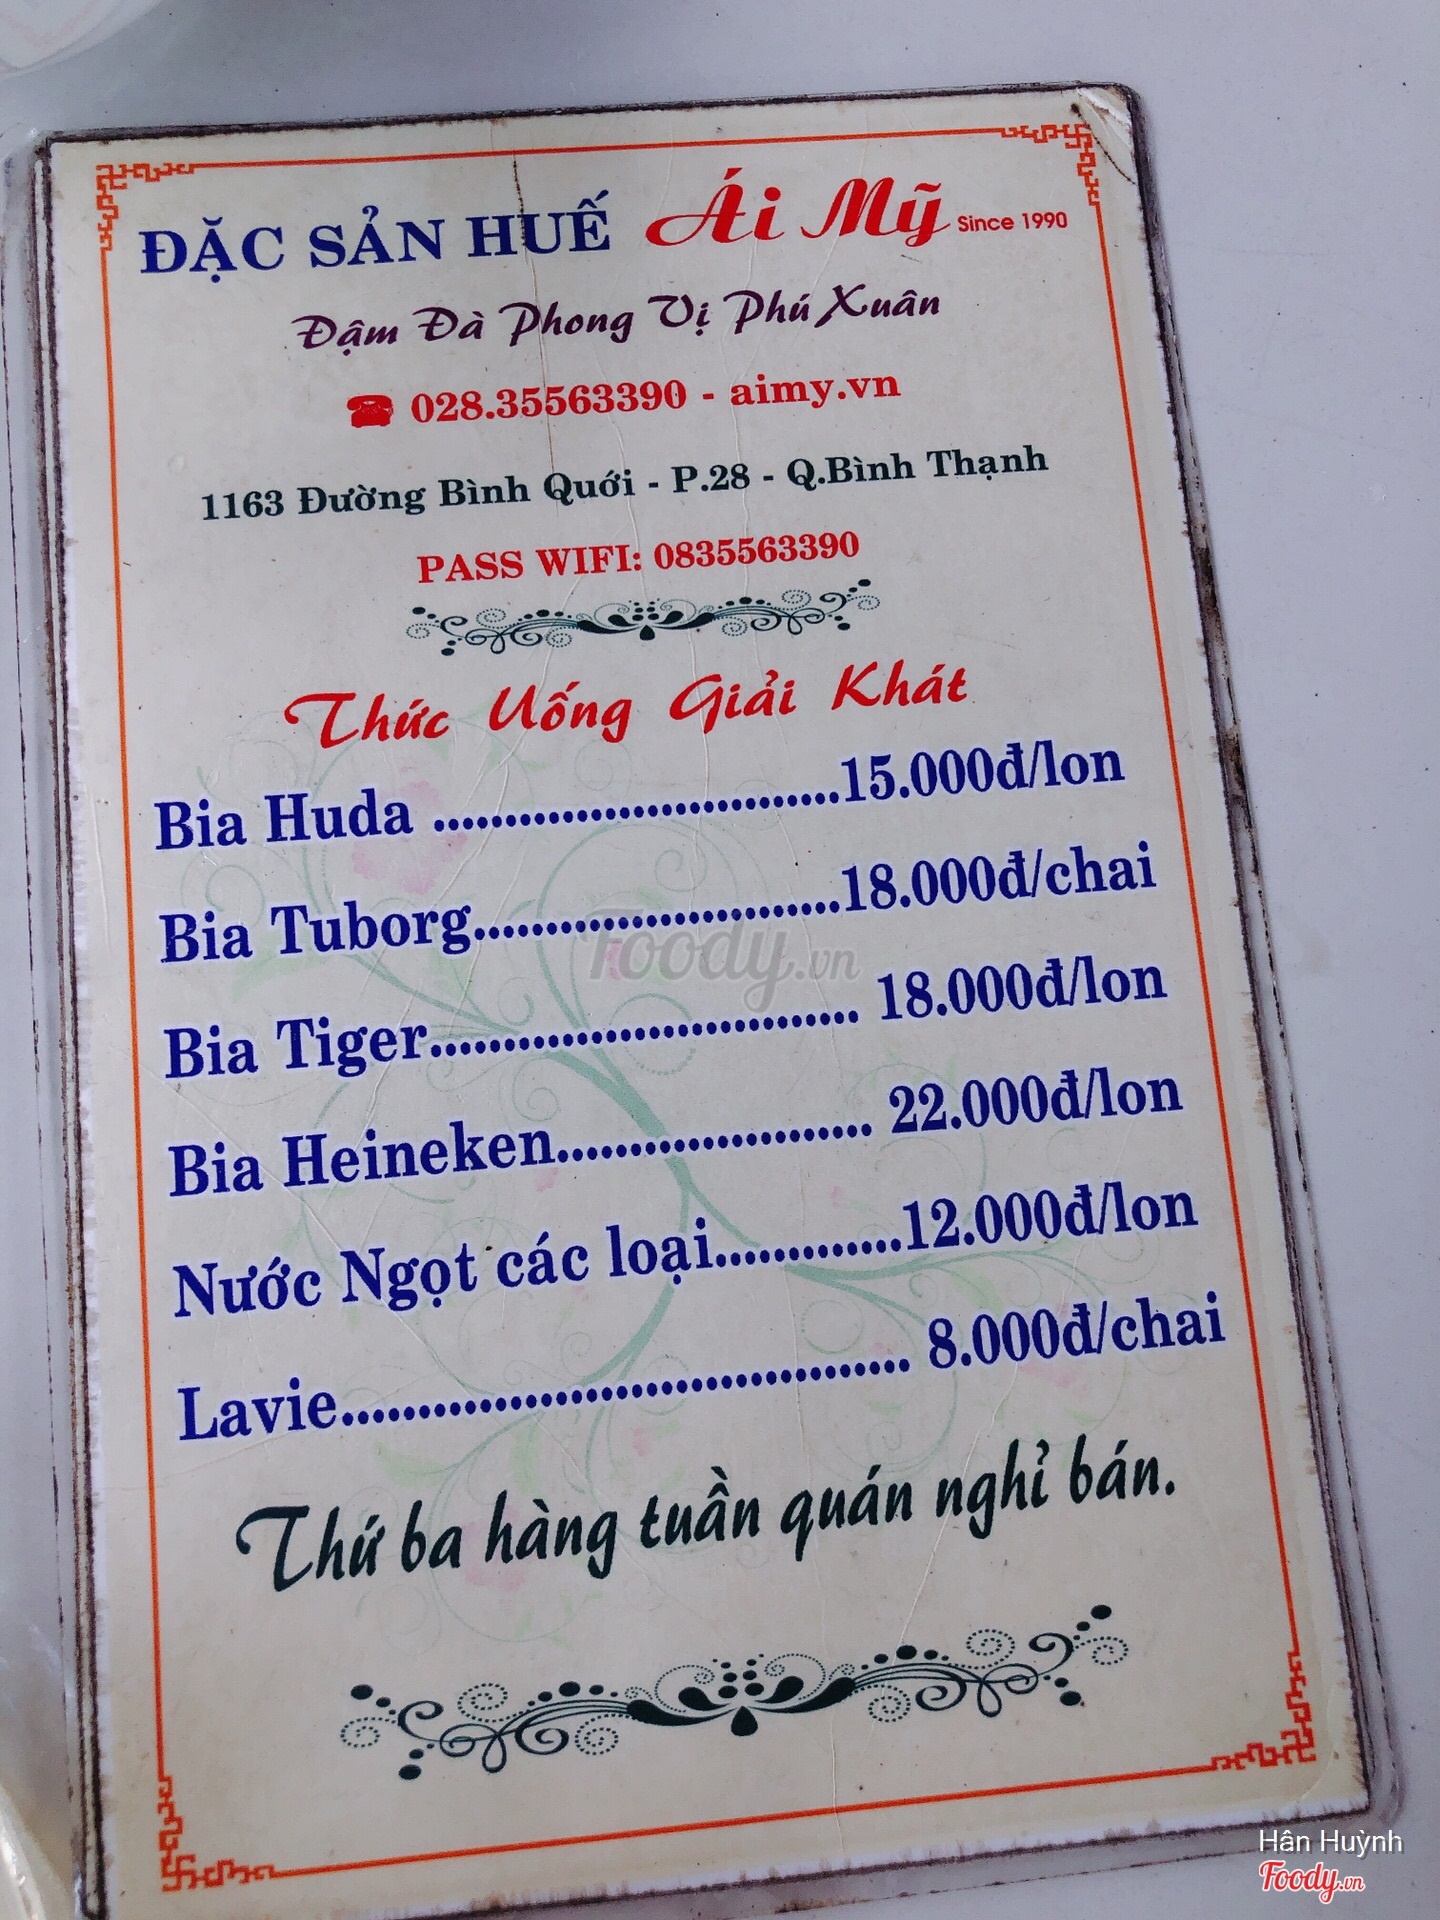 ĐẶC SẢN HUẾ Ái Mỹ Since 1990
Đậm Đà Phong Vị Phú Xuân
☎ 028.35563390 - aimy.vn
1163 Đường Bình Quới - P.28 - Q.Bình Thạnh
PASS WIFI: 0835563390
Thức Uống Giải Khát
Bia Huda ............................15.000đ/lon
Bia Tuborg..........................18.000đ/chai
Foody.vn
Bia Tiger.............................. 18.000đ/lon
Bia Heineken...................... 22.000đ/lon
Nước Ngọt các loại.............12.000đ/lon
Lavie...................................... 8.000đ/chai
Thứ ba hàng tuần quán nghỉ bán.
Hân Huỳnh
Foody.vn